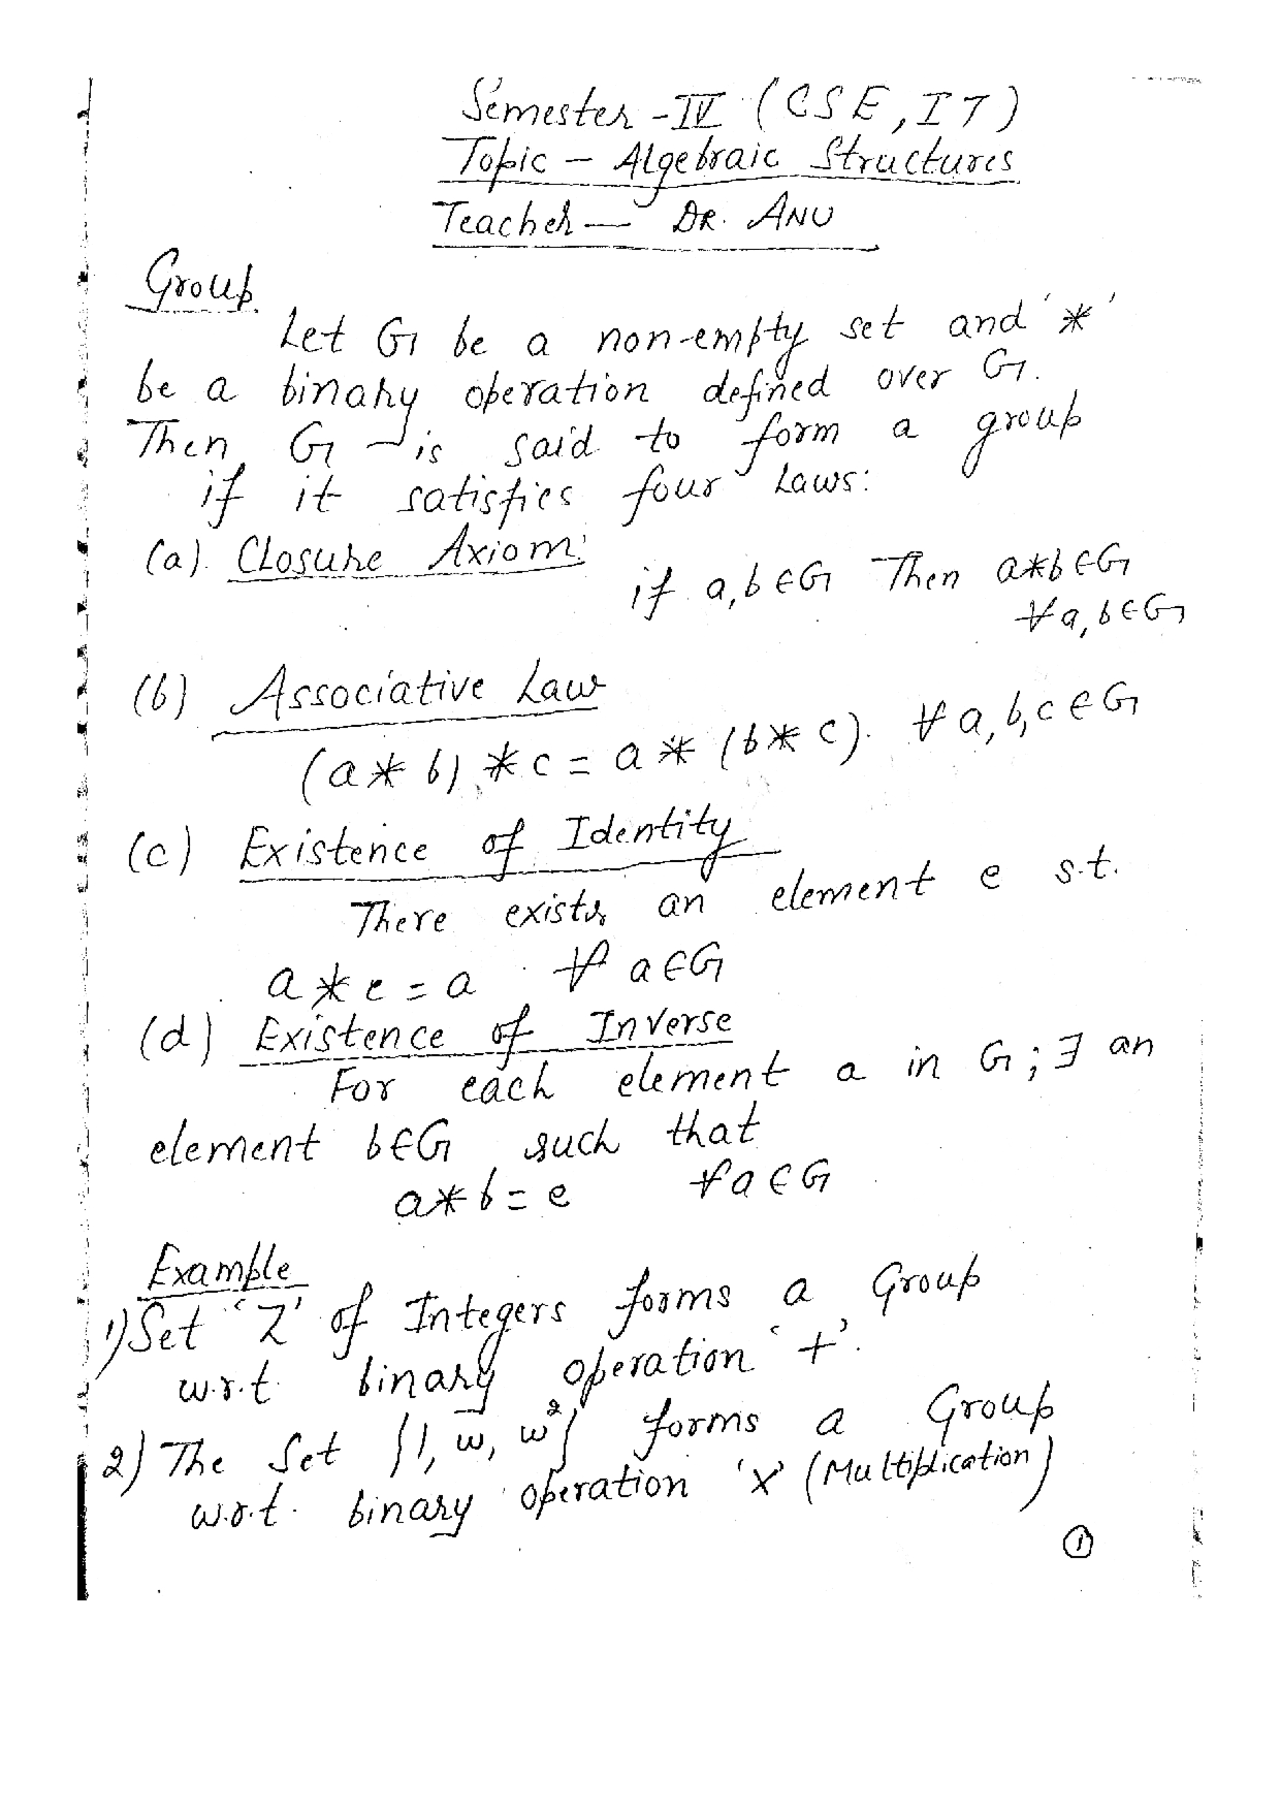 Semester - IV (CSE, IT)
Topic - Algebraic Structures
Teacher - DR. ANU
Group
Let G be a non-empty set and '*'
be a binary operation defined over G.
Then G is said to form a group
if it satisfies four Laws:
(a) Closure Axiom:
if a,b ∈ G Then a*b ∈ G
∀ a,b ∈ G
(b) Associative Law
(a * b) * c = a * (b * c). ∀ a,b,c ∈ G
(c) Existence of Identity
There exists an element e s.t.
a * e = a ∀ a ∈ G
(d) Existence of Inverse
For each element a in G; ∃ an
element b ∈ G such that
a * b = e ∀ a ∈ G
Example
1) Set 'Z' of Integers forms a Group
w.r.t. binary operation '+'.
2) The Set {1, w, w²} forms a Group
w.r.t. binary operation 'x' (Multiplication)
1